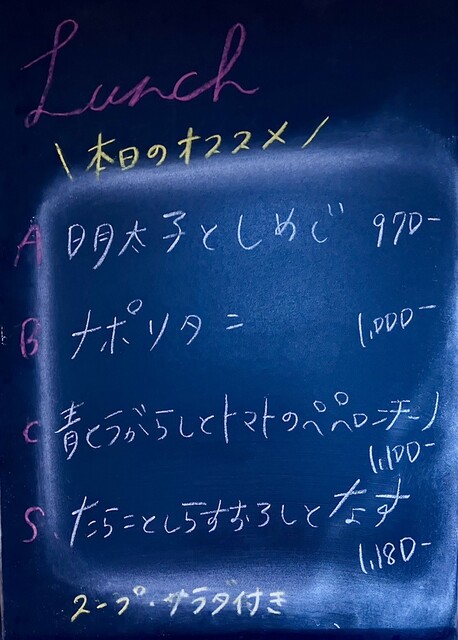 Lunch
\ 本日のオススメ /
A 明太子としめじ 970-
B ナポリタン 1,000-
C 青とうがらしとトマトのペペロンチーノ
1,100-
S. たらことしらすおろしとなす
1,180-
スープ・サラダ付き